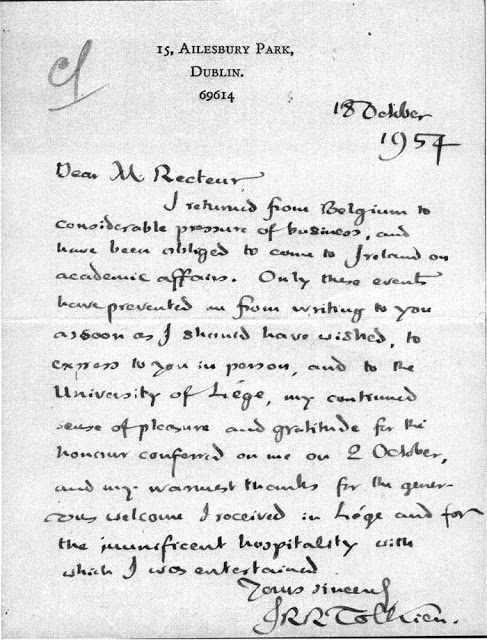 15, Ailesbury Park,
Dublin.
69614
18 October
1954
Dear M. Recteur
I returned from Belgium to
considerable pressure of business, and
have been obliged to come to Ireland on
academic affairs. Only these events
have prevented me from writing to you
as soon as I should have wished, to
express to you in person, and to the
University of Liége, my continued
sense of pleasure and gratitude for the
honour conferred on me on 2 October,
and my warmest thanks for the gener-
ous welcome I received in Liége and for
the munificent hospitality with
which I was entertained
Yours sincerely
JRRTolkien.